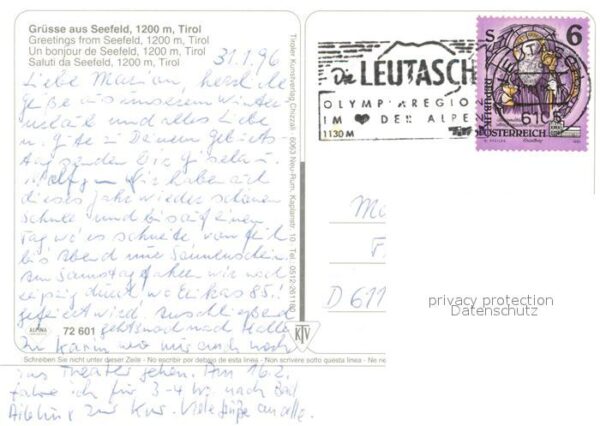 Grüsse aus Seefeld, 1200 m, Tirol
Greetings from Seefeld, 1200 m, Tirol
Un bonjour de Seefeld, 1200 m, Tirol
Saluti da Seefeld, 1200 m, Tirol
31.1.96
Liebe Marion, herzliche
Grüße aus unserem Winter
urlaub und alles Liebe
u. Gute in Deinem Geburts-
tag senden Dir Gisela u.
Wolfgang Wir haben auch
dieses Jahr wieder schönen
Schnee und bis auf einen
Tag wo es schneite von früh
bis abend nur Sonnenschein.
Am Samstag fahren wir nach
Leipzig durch wo Erikas 85.
gefeiert wird. Anschließend
geht's noch nach Halle
zu Karin wo wir auch noch
ins Theater gehen. Am 16.2.
fahre ich für 3-4 Wo. nach Bad
Aibling zur Kur. Viele Grüße an alle.
ALPINA
72 601
Schreiben Sie nicht unter dieser Zeile - No escribir por debajo de esta linea - Ne pas écrire sous cette ligne - Non scrivere sotto questa linea
Tiroler Kunstverlag Chizzali · 6063 Neu-Rum, Kaplanstr. 10 · Tel. 0512/261180
KTV
Die LEUTASCH
OLYMPIAREGION
IM ❤ DER ALPEN
1130 M
6105
S 6
REPUBLIK
ÖSTERREICH
D 611
privacy protection
Datenschutz